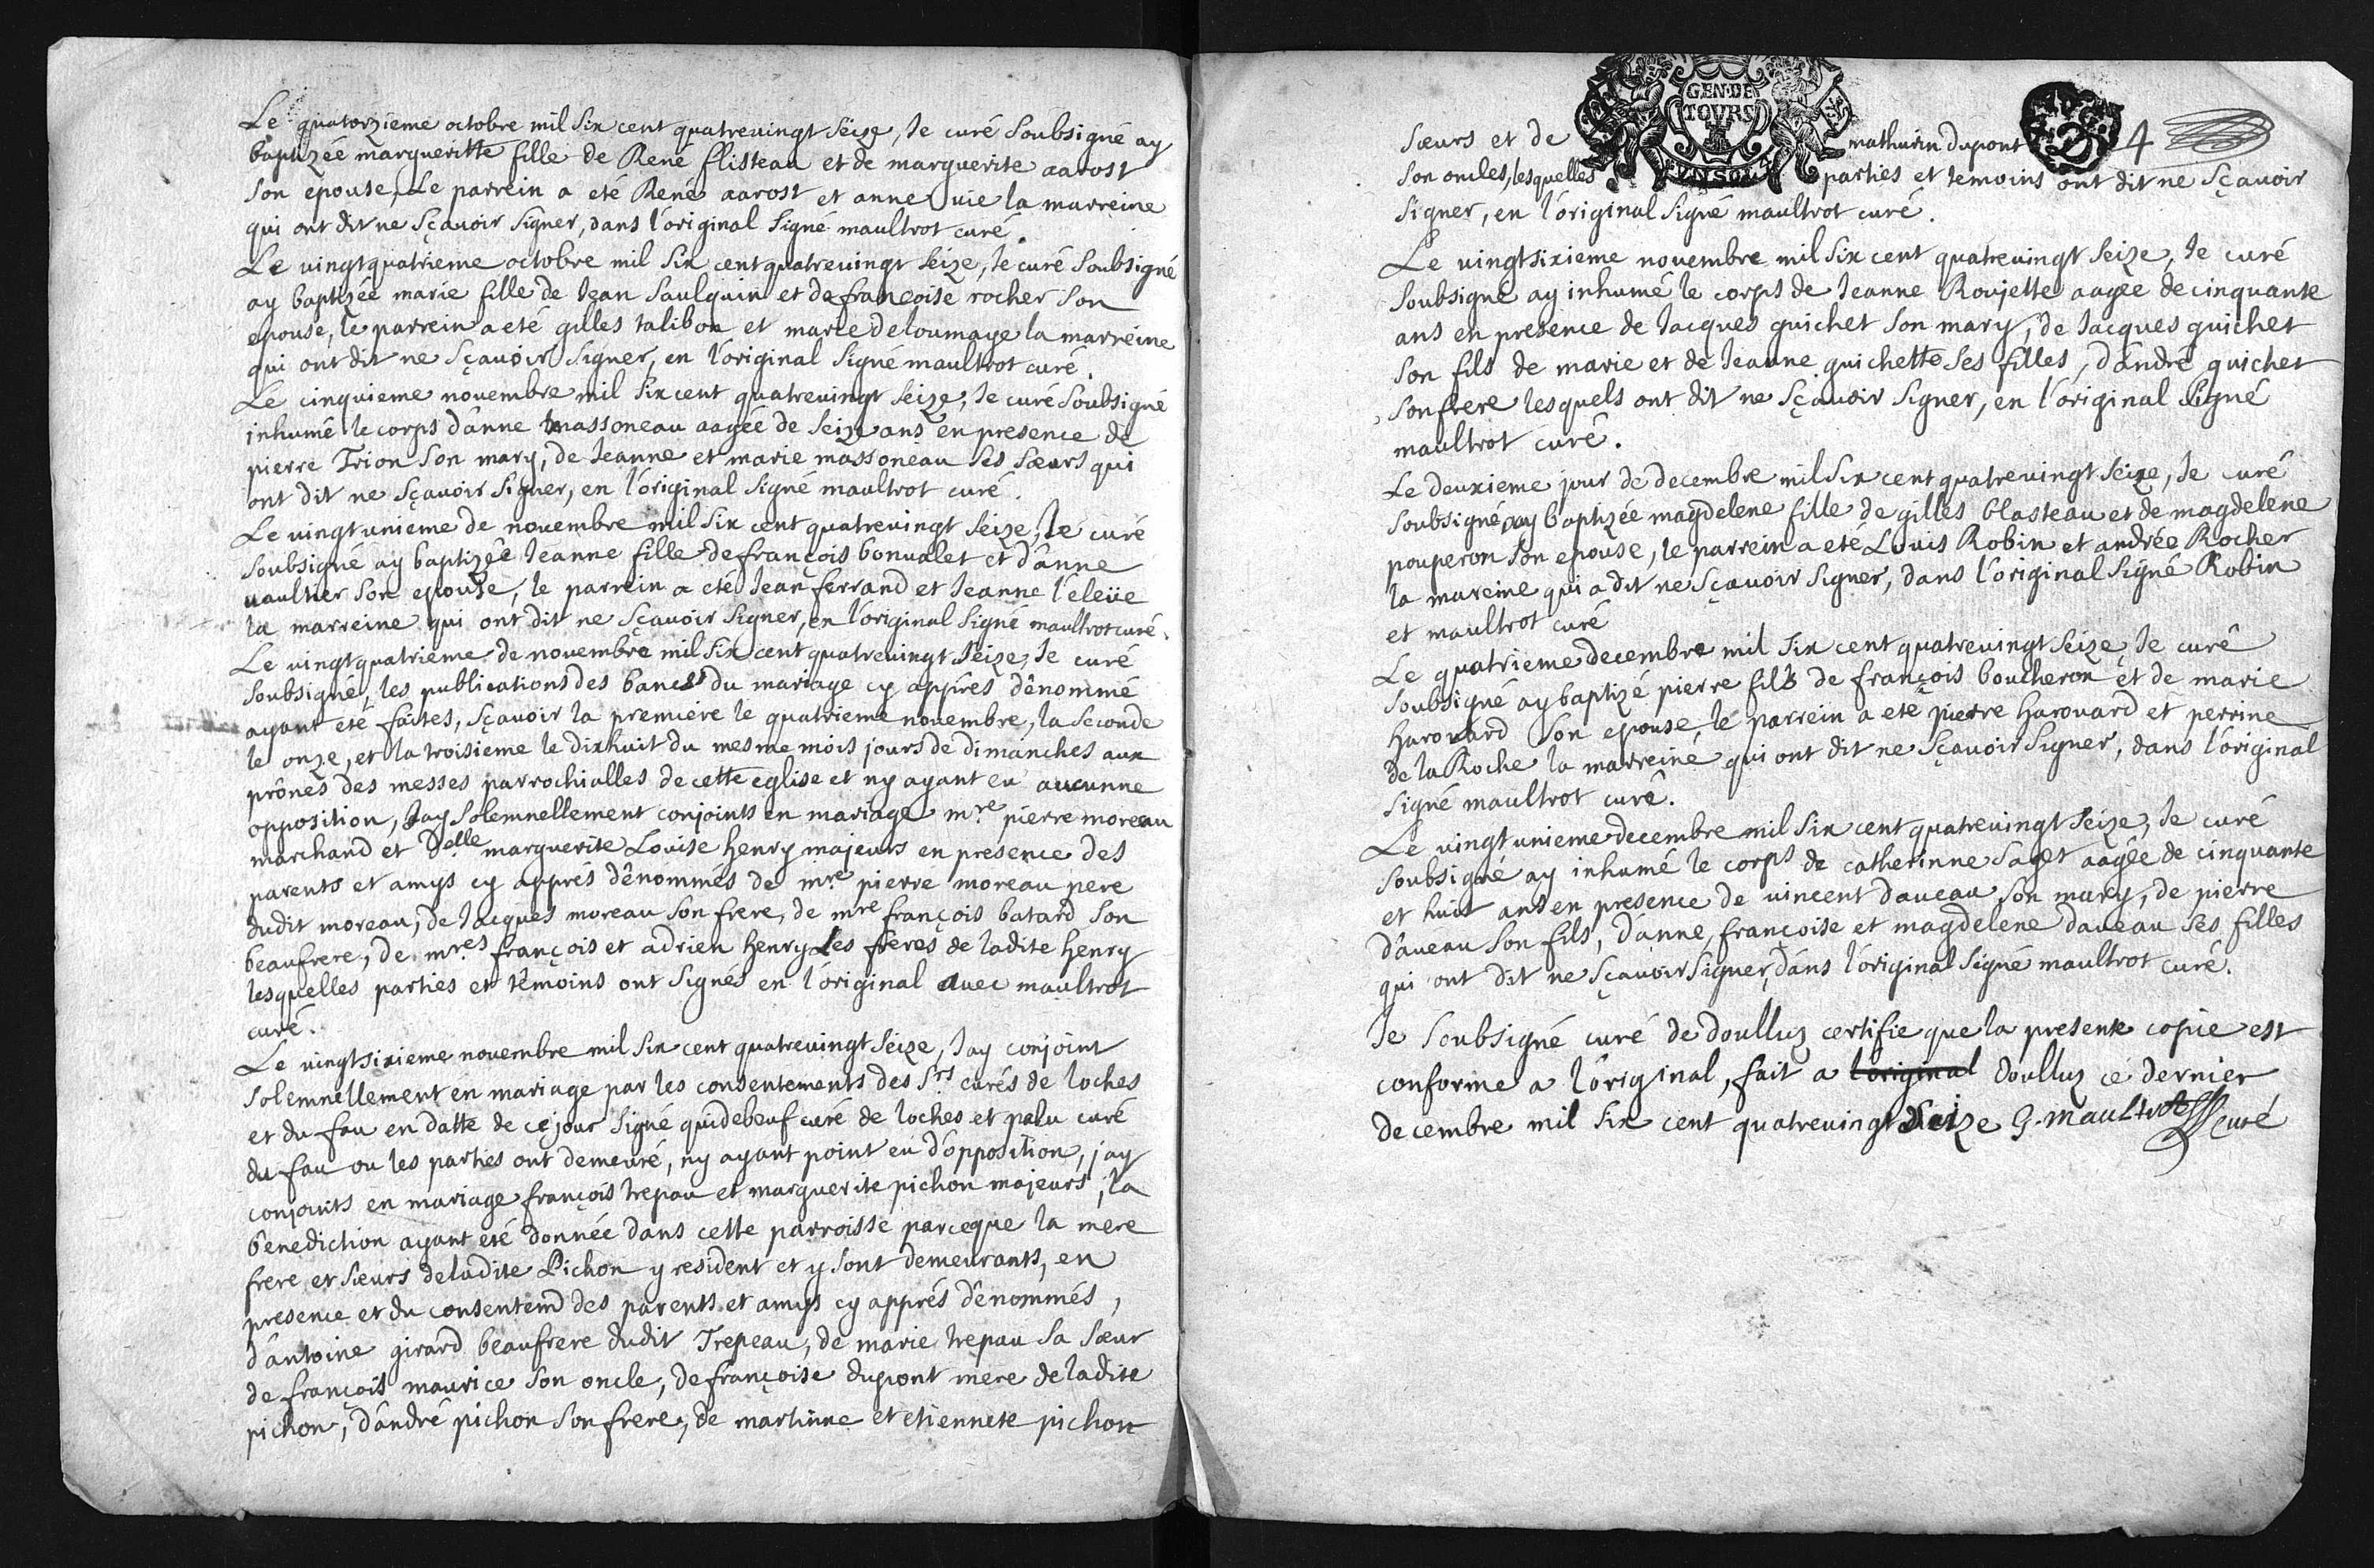 Le quatorzieme octobre mil six cent quatrevingt seize, Je curé soubsigné ay
baptizéé margueritte fille de René flisteau et de marguerite aarost
son epouse, Le parrein a eté René aarost et anne vie la marreine
qui ont dit ne sçavoir signer, dans l'original signé maultrot curé.
Le vingtquatrieme octobre mil six cent quatrevingt seize, Je curé soubsigné
ay baptizée marie fille de Jean saulquin et de francoise rocher son
epouse, le parrein a eté gilles talibon et marie deloumaye la marreine
qui ont dit ne sçavoir signer, en l'original signé maultrot curé.
Le cinquieme novembre mil six cent quatrevingt seize, Je curé soubsigné
inhumé le corps d'anne massoneau aagéé de seize ans en presence de
pierre Trion son mary, de Jeanne et marie massoneau ses sœurs qui
ont dit ne sçavoir signer, en l'original signé maultrot curé.
Le vingt unieme de novembre mil six cent quatrevingt seize, Je curé
soubsigné ay baptizéé Jeanne fille de françois bonvalet et d'anne
vaultier son epouse, le parrein a eté Jean ferrand et Jeanne l'eleüe
la marreine qui ont dit ne sçavoir signer, en l'original signé maultrot curé.
Le vingtquatrieme de novembre mil six cent quatrevingt seize, Je curé
soubsigné, les publications des bancs du mariage cy apprés dénommé
ayant eté faites, sçavoir la premiere le quatrieme novembre, la seconde
le onze, et la troisieme le dixhuit du mesme mois jours de dimanches aux
prônes des messes parrochialles de cette eglise et ny ayant eu aucunne
opposition, Jay solemnellement conjoints en mariage mre pierre moreau
marchand et Delle marguerite Louise henry majeurs en presence des
parents et amys cy apprés dénommés de mre pierre moreau pere
dudit moreau, de Jacques moreau son frere, de mre françois batard son
beaufrere, de mres françois et adrien henry les freres de ladite henry
lesquelles parties et témoins ont signés en l'original avec maultrot
curé.
Le vingtsixieme novembre mil six cent quatrevingt seize, Jay conjoint
solemnellement en mariage par les consentements des srs curés de loches
et du fau en datte de ce jour signé quidebeuf curé de loches et palu curé
du fau ou les parties ont demeuré, ny ayant point eu d'opposition, jay
conjoints en mariage françois trepau et marguerite pichon majeurs, la
benediction ayant eté donnée dans cette parroisse parceque la mere
frere et sœurs de ladite Pichon y resident et y sont demeurants, en
presence et du consentemd des parents et amys cy apprés dénommés,
d'antoine girard beaufrere dudit Trepeau, de marie trepau sa sœur
de françois maurice son oncle, de françoise dupont mere de ladite
pichon, d'andré pichon son frere, de martinne et etiennete pichon
GEN·DE
TOVRS
VN SOL
sœurs et de mathurin dupont 4
son oncles, lesquelles parties et temoins ont dit ne sçavoir
signer, en l'original signé maultrot curé.
Le vingtsixieme novembre mil six cent quatrevingt seize, Je curé
soubsigné ay inhumé le corps de Jeanne Roujette aagee de cinquante
ans en presence de Jacques guichet son mary, de Jacques guichet
son fils de marie et de Jeanne guichette ses filles, d'andré guichet
son frere lesquels ont dit ne sçavoir signer, en l'original signé
maultrot curé.
Le deuxieme jour de decembre mil six cent quatrevingt seize, Je curé
soubsigné ay baptizée magdelene fille de gilles blasteau et de magdelene
pouperon son epouse, le parrein a eté Louis Robin et andrée Rocher
la mareine qui a dit ne sçavoir signer, dans l'original signé Robin
et maultrot curé
Le quatrieme decembre mil six cent quatrevingt seize, Je curé
soubsigné ay baptizé pierre fils de françois boucheron et de marie
harouard son epouse, le parrein a eté pierre harouard et perrine
de la Roche la marreine qui ont dit ne sçavoir signer, dans l'original
signé maultrot curé.
Le vingt unieme decembre mil six cent quatrevingt seize, Je curé
soubsigné ay inhumé le corps de catherinne saget aagée de cinquante
et huit ans en presence de vincent daveau son mary, de pierre
d'aveau son fils, d'anne, françoise et magdelene daveau ses filles
qui ont dit ne sçavoir signer, dans l'original signé maultrot curé.
Je soubsigné curé de doullus certifie que la presente copie est
conforme a l'original, fait a l'original doullus ce dernier
decembre mil six cent quatrevingt seize G. maultrot curé